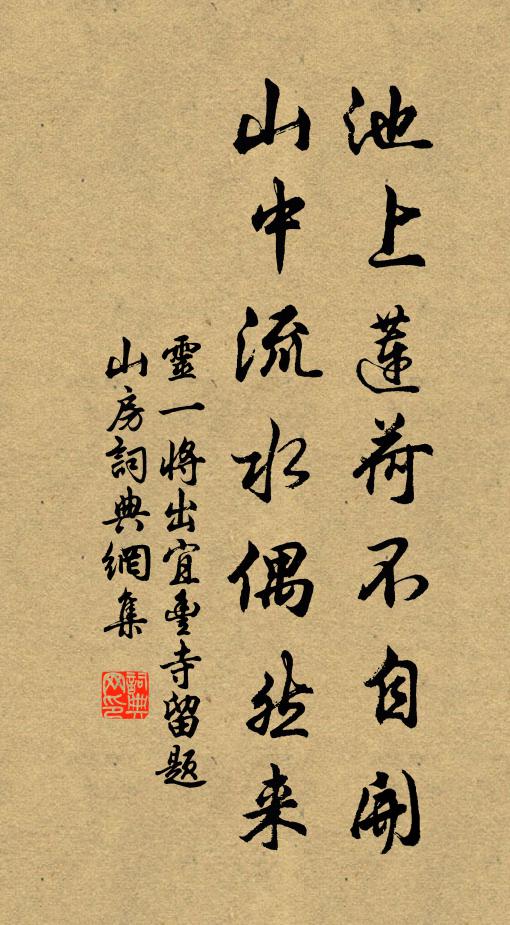 池上蓮荷不自開
山中流水偶然来
靈一將出宜豐寺留題
山房詞典網集
詞典網印